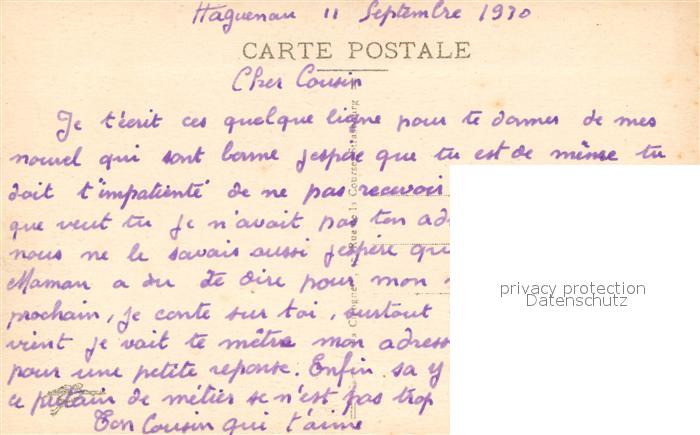 Haguenau 11 Septembre 1930
CARTE POSTALE
Cher Cousin
Je t'écrit ces quelque ligne pour te donner de mes
nouvel qui sont bonne jespère que tu est de même tu
doit t'impatienté de ne pas recevoir
que veut tu je n'avait pas ton
nous ne le savais aussi jespère
Maman a du te dire pour mon
prochain, je conte sur toi, surtout
vient je vait te mètre mon adress
pour une petite reponse. Enfin sa y
ce putain de métier se n'est pas trop
Ton Cousin qui t'aime
Rue de la Course Strasbourg
privacy protection
Datenschutz